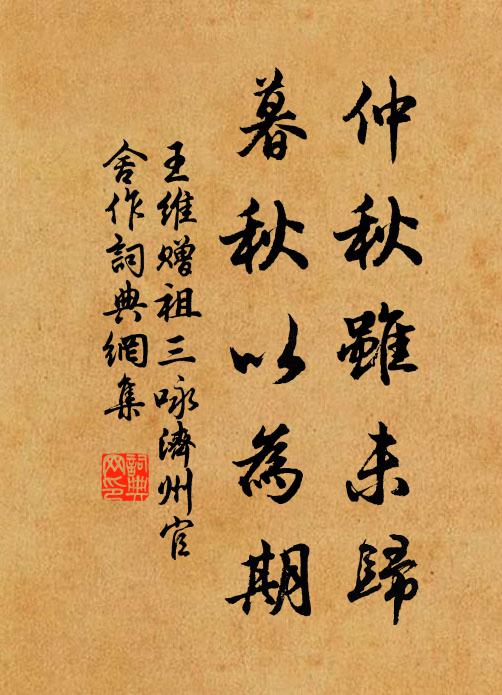 仲秋雖未歸
暮秋以為期
王維贈祖三咏濟州官
舍作詞典網集
詞典
网印